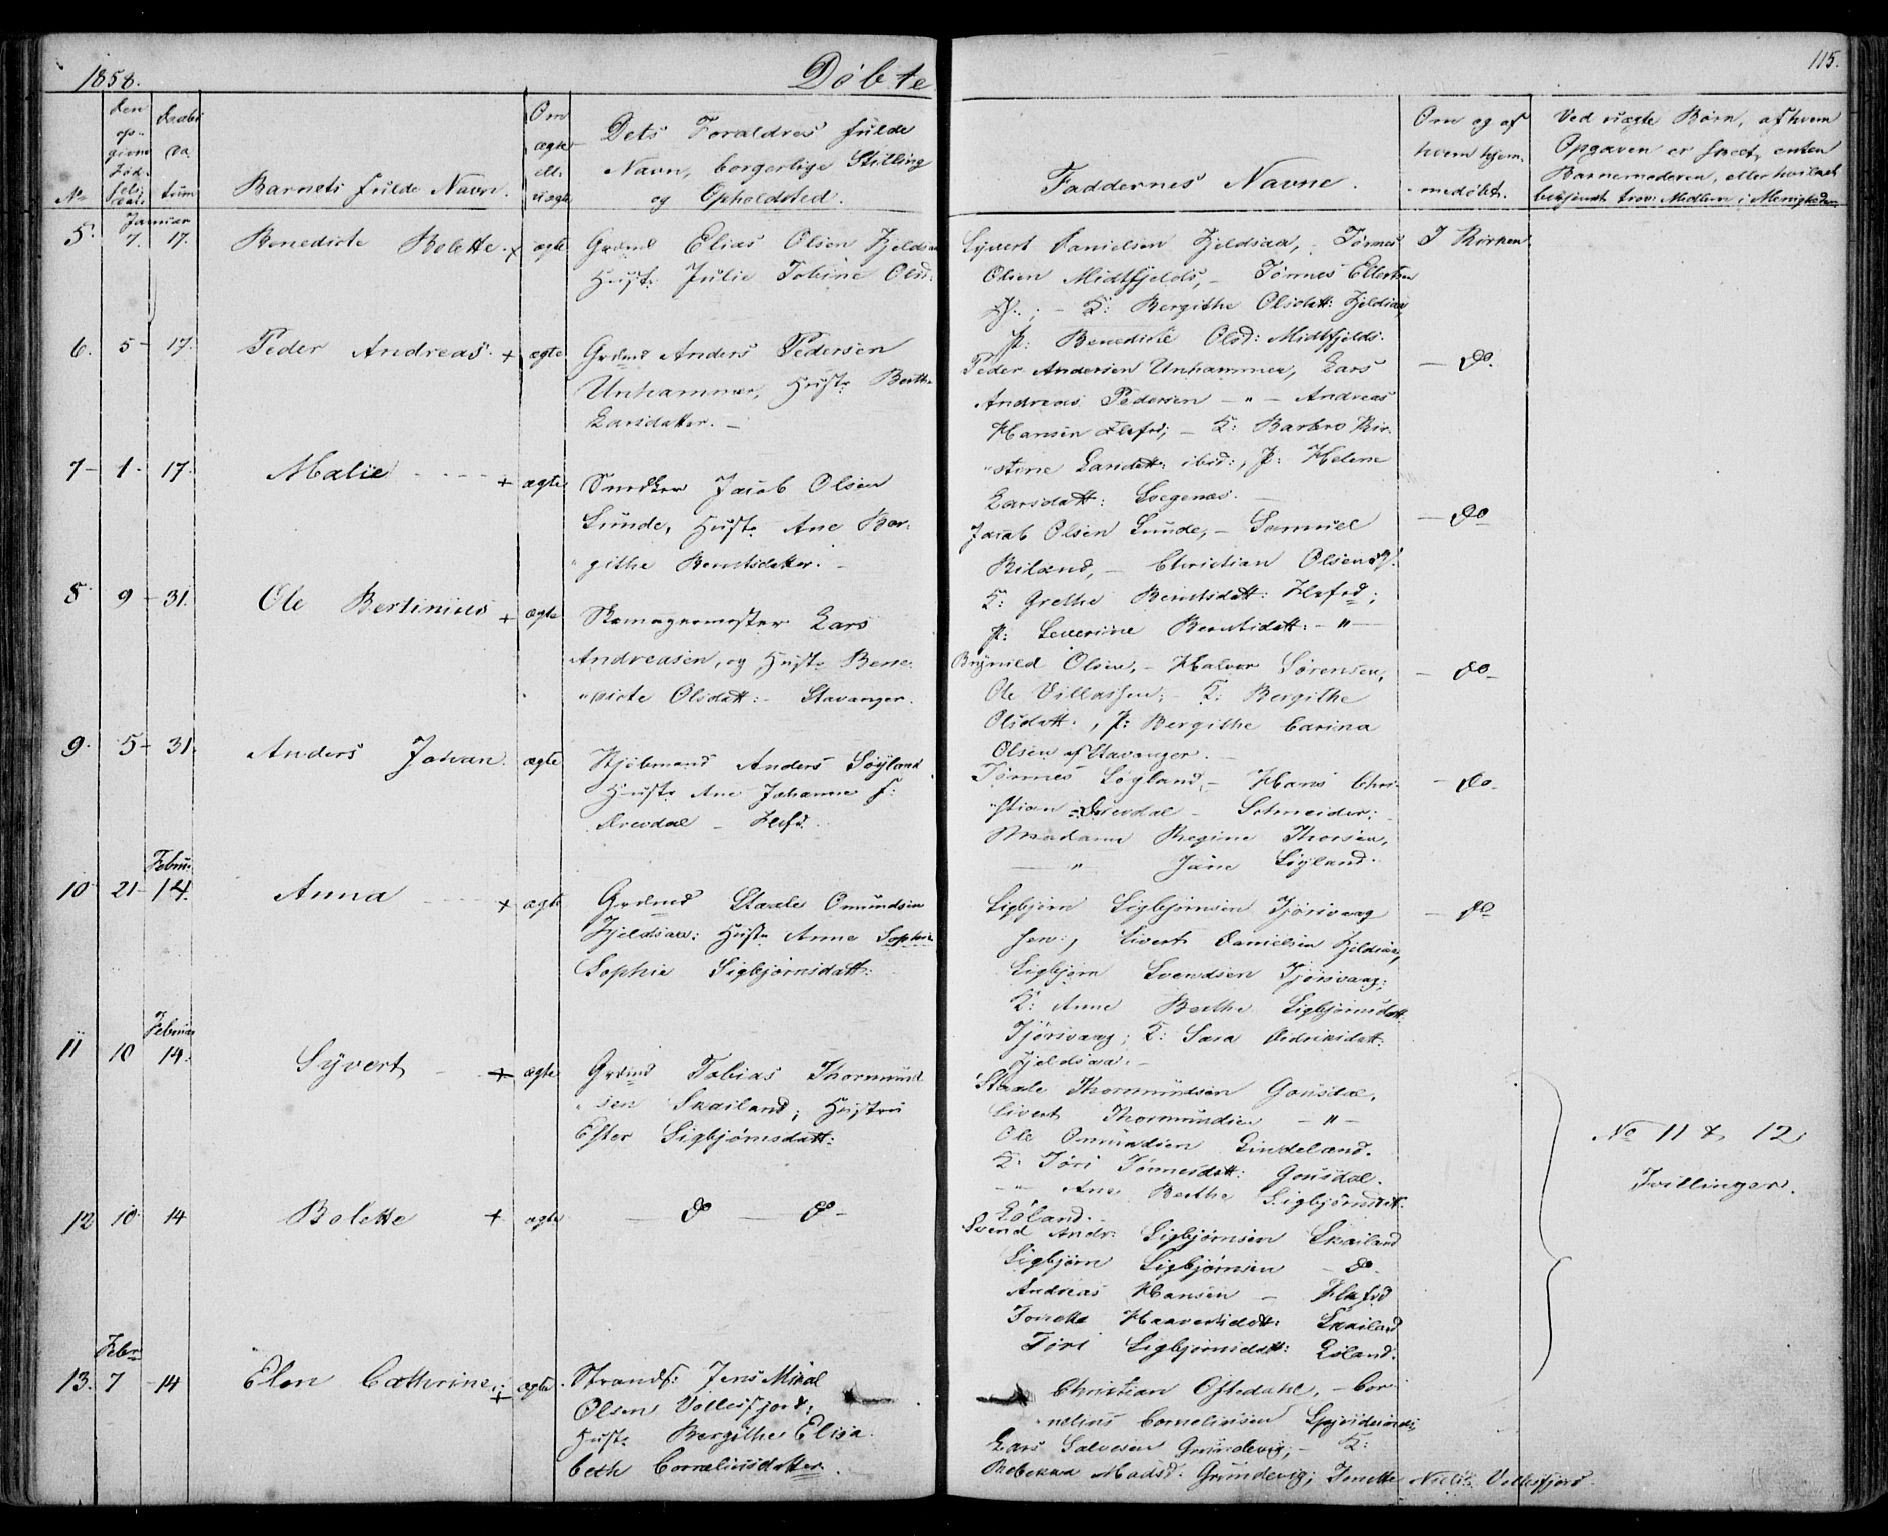 1858.
Döbte
115.
No
Den op- givne Föd- sels
Daabs Da- tum
Barnets fulde Navn.
Om ægte ell. uægte
Dets Foraldres fulde
Navn, borgerlige Stilling
og Opholdsted.
Faddernes Navne.
Om og af
hvem hjem-
medöbt.
Ved uægte Börn, af hvem
Opgaven er skeet, enten
Barnemoderen, eller hvilket
bekjendt trov: Medlem i Menigheden
Januar
5. 7. 17. Benedicte Bolette. + ægte
Grdmd Elias Olsen Fjeldsaa
Hustr Julie Tobine Olsd:
Syvert Danielsen Fjeldsaa, Tönnes
Olsen Midtfjelds, - Tönnes Ellertsen
K: Bergithe Olsdatt: Fjeldsaa
P: Benedicte Olsd: Midtfjelds.
I Kirken
6. 5 - 17. Peder Andreas. + ægte
Grdmd Anders Pedersen
Unhammer, Hustr Berthe
Larsdatter. -
Peder Andersen Unhammer, Lars
Andreas Pedersen - " - Andreas
Hansen Flefd; - K: Barbro Kir-
"stine Larsdatt: ibid:, P: Helene
Larsdatt:
- Do.
7 - 1. 17. Malie + ægte
Snedker Jacob Olsen
Lunde, Hustr Ane Ber-
"githe Berntsdatter. -
Jacob Olsen Lunde, - Samuel
Biland, - Christian Olsen
K: Grethe Berntsdatt: Flefd;
P: Severine Berntsdatt: - " -
- Do
8. 9 - 31. Ole Bertinius + ægte
Skomagermester Lars
Andreasen, og Hustr Bene-
"dicte Olsdatt: - Stavanger.
Brynild Olsen, - Halvor Sörensen,
Ole Villassen; - K: Bergithe
Olsdatt., P: Bergithe Carina
Olsen af Stavanger.
- Do -
9. 5 - 31. Anders Johan. ægte
Kjöbmand Anders Söyland
Hustr Ane Johanne f:
Drevdal - Flefd.
Tönnes Söyland, - Hans Chri-
"stian Drevdal - Schneider;
Madame Regine Thorsen,
- " - Jane Söyland.
- Do -
Februar
10. 21 - 14. Anna + ægte
Grdmd Staale Omundsen
Fjeldsaa: Hustr Anne Sophie
Sophie Sigbjörnsdatt:
Sigbjörn Sigbjörnsen Tjörsvaag
sen:, Sivert Danielsen Fjeldsaa,
Sigbjörn Svendsen Tjörsvaag;
K: Anne Berthe Sigbjörnsdatt:
Tjörsvaag; K: Sara Didriksdatt:
Fjeldsaa. -
- Do
Februar
11 10 14. Syvert + ægte
Grdmd Tobias Thormund
"sen Skailand; Hustru
Ester Sigbjörnsdatt:
Staale Thormundsen Gousdal,
Sivert Thormundsen - " -
Ole Omundsen Lindeland.
K: Töri Tönnesdatt: Gousdal.
- " - Ane Berthe Sigbjörnsdatt:
Eöland.
No 11 & 12;
Tvillinger.
12 10. 14 Bolette + ægte
- Do - Do -
Svend Andr: Sigbjörnsen Skailand
Sigbjörn Sigbjörnsen - Do.
Andreas Hansen - Flefd
Tonette Haaversdatt: Skailand
Töri Sigbjörnsdatt: Eöland.
Febr
13. 7 - 14 Elen Cathrine. + ægte.
Strands: Jens Mikal
Olsen Vollesfjord;
Hustr Bergithe Elisa-
beth Corneliusdatter.
Christian Oftedahl, - Cor-
"nelius Corneliussen
Lars Salvesen Grundevig; - K:
Rebekka Madsd. Grundevig; Jonette Niels: Vollesfjord.